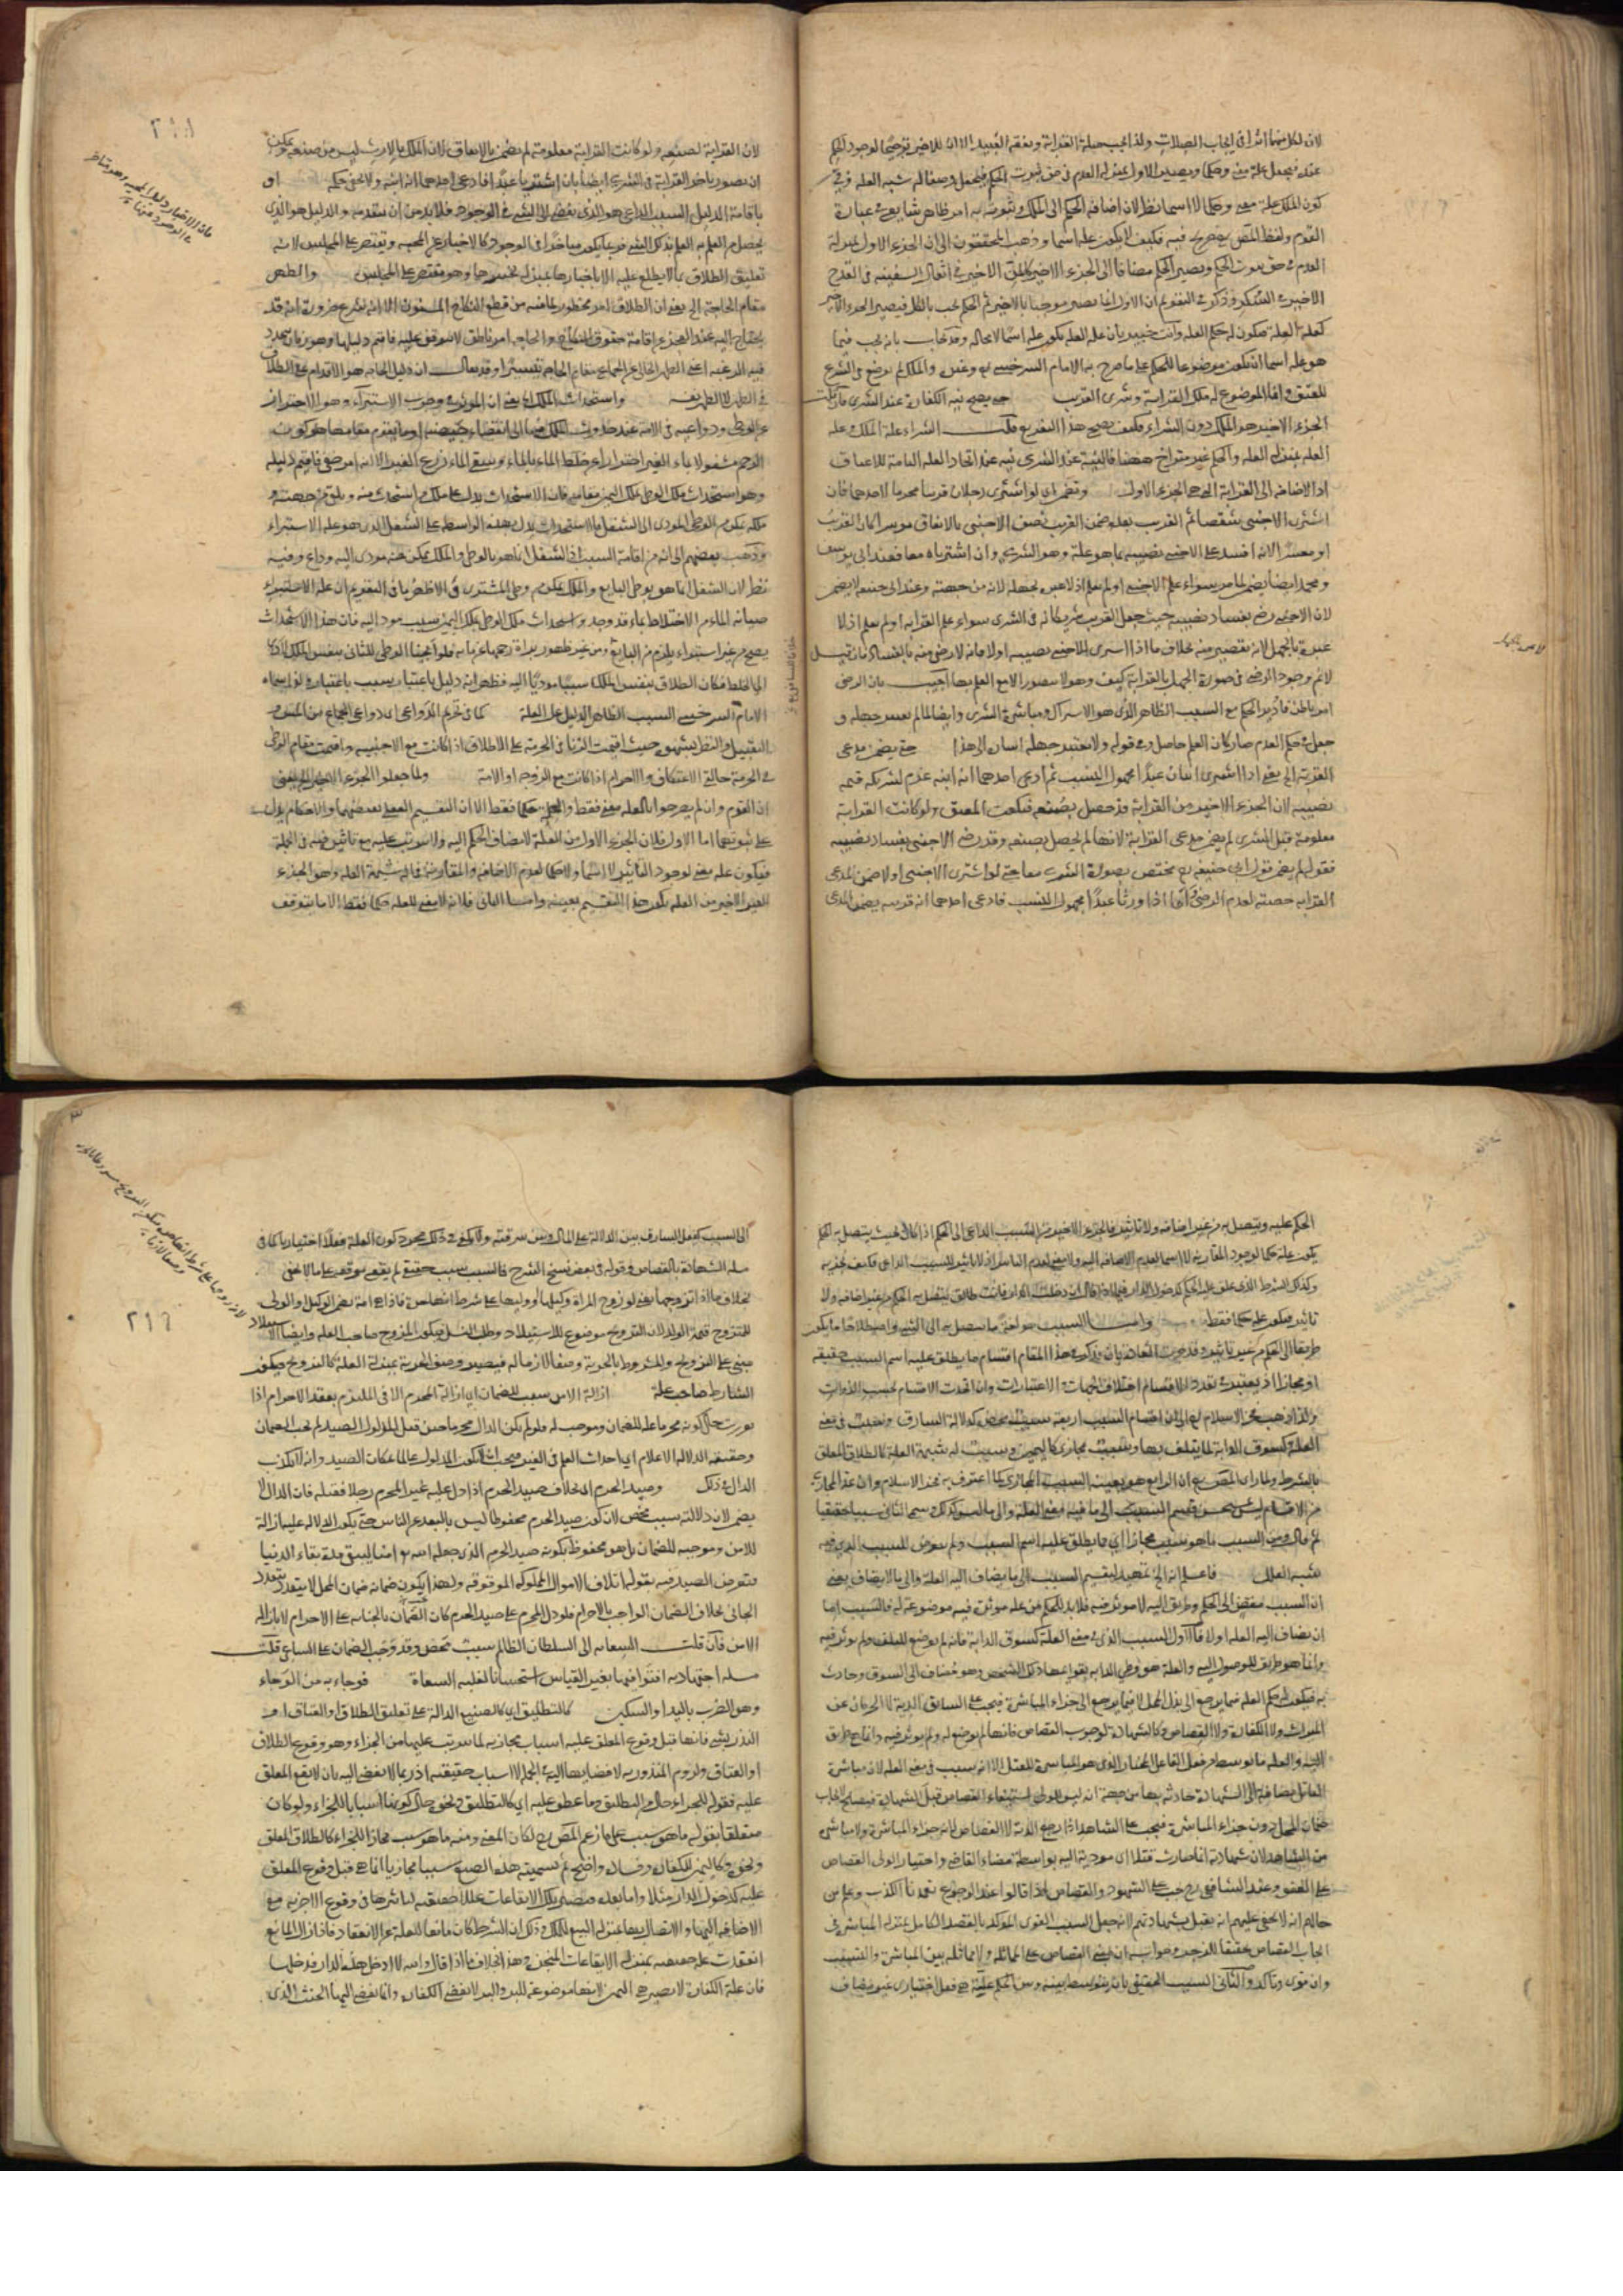 لان لكل منهما اثرا في ايجاب الصلات ولذا يجب صلة القرابة ونفقة العبيد الا ان للاخير ترجيحا لوجود الحكم
عنده فيجعل علة معنى وحكما ويصير الاول بمنزلة العدم في حق ثبوت الحكم فيجعل وصفا له شبه العلة وفي
كون الملك علة معنى وحكما لا اسما نظر لان اضافة الحكم الى الملك وثبوته به امر ظاهر شايع في عبارة
القوم ولفظ المص مصرح فيه فكيف لا يكون علة اسما وذهب المحققون الى ان الجزء الاول بمنزلة
العدم في حق ثبوت الحكم ويصير الحكم مضافا الى الجزء الاخير كالمن الاخير في اثقال السفينة والقدح
الاخير في السكر وذكر في التقويم ان الاول انما يصير موجبا بالاخير ثم الحكم يجب بالكل فيصير الجزء الاخير
كعلة العلة فيكون له حكم العلة وانت خبير بان علة العلة تكون علة اسما لا محالة وقد يجاب بانه يجب فيما
هو علة اسما ان يكون موضوعا للحكم على ما صرح به الامام السرخسي وغيره والملك لم يوضع في الشرع
للعتق وانما الموضوع له ملك القرابة وشرى القريب حتى يصح نية الكفارة عند الشرى فان قلت
الجزء الاخير هو الملك دون الشراء فكيف يصح هذا التفريع قلت الشراء علة الملك وعلة
العلة بمنزلة العلة والحكم غير متراخ ههنا فالنية عند الشرى نية عند اتحاد العلة التامة للاعتاق
اذ الاضافة الى القرابة التي هي الجزء الاول ويضمن اي لو اشترى رجلان قريبا محرما لاحدهما فان
اشترى الاجنبي شقصا ثم القريب بعده ضمن القريب نصف الاجنبي بالاتفاق موسرا كان القريب
او معسرا لانه افسد على الاجنبي نصيبه بما هو علة وهو الشرى وان اشترياه معا فعند ابي يوسف
ومحمد ايضا يضمن لما مر سواء علم الاجنبي او لم يعلم اذ لا عبرة بجهله لانه من جهته وعند ابي حنيفة لا يضمن
لان الاجنبي رضي بفساد نصيبه حيث جعل القريب شريكا له في الشرى سواء علم القرابة او لم يعلم اذ لا
عبرة بالجهل لانه تقصير منه بخلاف ما اذا اشترى الاجنبي نصيبه اولا فانه لا رضى منه بالفساد فان قيل
لا ثم وجود الرضى في صورة الجهل بالقرابة كيف وهو لا يتصور الا مع العلم بها اجيب بان الرضى
امر باطن فادير الحكم مع السبب الظاهر الذي هو الاشتراك ومباشرة الشرى وايضا لما لم يعتبر جهله و
جعل في حكم العدم صار كان العلم حاصل وفي قوله ولا يعتبر جهله اشارة الى هذا حتى يضمن مدعى
القرابة الخ يعني اذا اشترى اثنان عبدا مجهول النسب ثم ادعى احدهما انه ابنه غرم لشريكه قيمة
نصيبه لان الجزء الاخير من القرابة قد حصل بصنعه فكانت المعتق ولو كانت القرابة
معلومة قبل الشرى لم يضمن مدعى القرابة لانها لم يحصل بصنعه وقد رضي الاجنبي بفساد نصيبه
فقوله لم يضمن قول ابي حنيفة يختص بصورة الشرى معا حتى لو اشترى الاجنبي اولا ضمن المدعى
القرابة حصته لعدم الرضى واما اذا ورثا عبدا مجهول النسب فادعى احدهما انه قريبه يضمن المدعى
لان القرابة لصنعه ولو كانت القرابة معلومة لم يضمن بالاتفاق لان الملك بالارث ليس من صنعه ويمكن
ان يصور تاخر القرابة في الشرى ايضا بان اشتريا عبدا فادعى احدهما انه ابنه ولا يخفى حكمه او
باقامة الدليل السبب الداعي هو الذي يفضي الى الشيء في الوجود فلا بد من ان يتقدمه والدليل هو الذي
يحصل من العلم به العلم بذلك الشيء فربما يكون متاخرا في الوجود كالاخبار عن المحبة ويقتصر على المجلس لانه
تعليق الطلاق بما لا يطلع عليه الا باخبارها بمنزلة تخييرها وهو مقتصر على المجلس والطهر
مقام الحاجة الخ يعني ان الطلاق امر محظور لما فيه من قطع النكاح المسنون الا انه شرع ضرورة انه قد
يحتاج اليه عند العجز عن اقامة حقوق النكاح والحاجة امر باطن لا يوقف عليه فاقيم دليلها وهو زمان تجدد
فيه الرغبة اعني الطهر الخالي عن الجماع مقام الحاجة تيسيرا وقد يقال ان دليل الحاجة هو الاقدام على الطلاق
في الطهر لا الطهر نفسه واستحداث الملك الخ يعني ان المؤثر في وجوب الاستبراء وهو الاحتراز
عن الوطى ودواعيه في الامة عند حدوث الملك فيها الى انقضاء حيضة او ما يقوم مقامها هو كون
الرحم مشغولا بماء الغير احترازا عن خلط الماء بالماء وسقي الماء زرع الغير الا انه امر خفي فاقيم دليله
وهو استحداث ملك الوطى بملك اليمين مقامه فان الاستحداث يدل على ملك من استحدث منه ويلقى من جهته و
ملكه يمكن من الوطى المؤدي الى الشغل فالاستحداث يدل بهذه الواسطة على الشغل الذي هو علة الاستبراء
وذهب بعضهم الى انه من اقامة السبب اذ الشغل انما هو بالوطى والملك يمكن منه مودى اليه وداع وفيه
نظر لان الشغل انما هو بوطى البايع والملك يمكن من وطى المشترى والاظهر ما في التقويم ان علة الاستبراء
صيانة الماء من الاختلاط بماء قد وجد واستحداث ملك الوطى بملك اليمين سبب مود اليه فان هذا الاستحداث
يصح من غير استبراء يلزم من البايع ومن غير ظهور براءة رحمها عن مائه فلو ابحنا الوطى للثاني بنفس الملك لادى
الى الخلط فكان الطلاق بنفس الملك سببا موديا اليه فظهر انه دليل باعتبار سبب باعتبار ولذا سماه
الامام السرخسي السبب الظاهر الدليل على العلة كما في تحريم الدواعي اي دواعي الجماع من المس و
التقبيل والنظر بشهوة حيث اقيمت الزنا في الحرمة على الاطلاق اذا كانت مع الاجنبية واقيمت مقام الوطى
في الحرمة حالتي الاعتكاف والاحرام اذا كانت مع الزوجة او الامة ولما جعلوا الجزء الاخير الخ يعني
ان القوم وان لم يصرحوا بالعلة معنى فقط والعلة حكما فقط الا ان التقسيم العقلي يقتضيهما والاحكام يدل
على ثبوتهما اما الاول فلان الجزء الاول من العلة لا يضاف الحكم اليه ولا يترتب عليه مع تاثيره فيه في الجملة
فيكون علة معنى لوجود التأثير لا اسما ولا حكما لعدم الاضافة والمقارنة فما له شبهة العلة وهو الجزء
الغير الاخير من العلة يكون هذا القسيم بعينه واما الثاني فلانه لا معنى للعلة حكما فقط الا ما يتوقف
الحكم عليه ويتصل به من غير اضافة ولا تاثير فالجزء الاخير من السبب الداعي الى الحكم اذا كان بحيث يتصل به الحكم
يكون علة حكما لوجود المقارنة لا اسما لعدم الاضافة اليه ولا معنى لعدم التاثير اذ لا تاثير للسبب الداعي فكيف بجزئه
وكذلك الشرط الذي علق عليه الحكم كدخول الدار فيما اذا قال ان دخلت الدار فانت طالق يتصل به الحكم من غير اضافة ولا
تاثير فيكون علة حكما فقط واما السبب هو لغة ما يتوصل به الى الشيء واصطلاحا ما يكون
طريقا الى الحكم من غير تاثير وقد جرت العادة بان يذكر في هذا المقام اقسام ما يطلق عليه اسم السبب حقيقة
او مجازا اذ يعتبر في تعدد الاقسام اختلاف الجهات والاعتبارات وان اتحدت الاقسام بحسب الذوات
ولذا ذهب فخر الاسلام الى ان اقسام السبب اربعة سبب محض كدلالة السارق وسبب في معنى
العلة كسوق الدابة لما يتلف بها وسبب مجازي كاليمين وسبب له شبهة العلة كالطلاق المعلق
بالشرط ولما راى المص ان الرابع هو بعينه السبب المجازي كما اعترف به فخر الاسلام وان عد المجازي
من الاقسام ليس بحسن قسم السبب الى ما فيه معنى العلة والى ما ليس كذلك وسمى الثاني سببا حقيقيا
ثم قال ومن السبب ما هو سبب مجازا اي مما يطلق عليه اسم السبب ولم يتعرض للسبب الذي فيه
شبه العلل فاعلم انه الخ تمهيد لتقسيم السبب الى ما يضاف اليه العلة والى ما لا يضاف يعني
ان السبب مفض الى الحكم وطريق اليه لا موثر فيه فلا بد للحكم من علة موثرة فيه موضوعة له فالسبب اما
ان يضاف اليه العلة او لا فالاول السبب الذي في معنى العلة كسوق الدابة فانه لم يوضع للتلف ولم يوثر فيه
وانما هو طريق للوصول اليه والعلة هو وطى الدابة بقوائمها ذلك الشخص وهو مضاف الى السوق وحادث
به فيكون له حكم العلة فيما يرجع الى بدل المحل لا فيما يرجع الى جزاء المباشرة فيجب على السائق الدية لا الحرمان عن
الميراث ولا الكفارة ولا القصاص وكالشهادة لوجوب القصاص فانها لم توضع له ولم يوثر فيه وانما هي طريق
اليه والعلة ما توسط من فعل الفاعل المختار الذي هو المباشرة للقتل الا انه سبب في معنى العلة لان مباشرة
القاتل مضافة الى الشهادة حادثة بها من جهة انه ليس للولي استيفاء القصاص قبل الشهادة فيصلح لايجاب
ضمان المحل دون جزاء المباشرة فيجب على الشاهد اذا رجع الدية لا القصاص لانه جزاء المباشرة ولا مباشرة
من الشاهد لان شهادته انما صارت قتلا اي مودية اليه بواسطة قضاء القاضي واختيار الولي القصاص
على العفو وعند الشافعي يجب على الشهود القصاص اذا قالوا عند الرجوع تعمدنا الكذب وعلم من
حالهم انه لا يخفى عليهم انه يقبل شهادتهم لانه جعل السبب القوي المؤكد بالقصد الكامل بمنزلة المباشرة في
ايجاب القصاص تحقيقا للزجر وجوابه ان مبنى القصاص على المماثلة ولا مماثلة بين المباشرة والتسبيب
وان قوي وتاكد والثاني السبب الحقيقي بان يتوسط بينه وبين الحكم علة هي فعل اختياري غير مضاف
الى السبب كفعل السارق بين الدلالة على المال وبين سرقته ولا يكفي في ذلك مجرد كون العلة فعلا اختياريا كما في
مسئلة الشهادة بالقصاص وقوله في بعض نسخ الشرح فالسبب سبب حقيقي لم يقع موقعه على ما لا يخفى
بخلاف ما اذا تزوجها يعني لو زوج المراة وكيلها او وليها على شرط انها حرة فاذا هي امة يضمن الوكيل او الولي
للمتزوج قيمة الولد لان التزويج موضوع للاستيلاد وطلب النسل فيكون المزوج صاحب العلة وايضا الاستيلاد
مبني على التزويج والمشروط بالحرية وصفا لازما له فيصير وصف الحرية بمنزلة العلة كالتزويج فيكون
الشارط صاحب علة ازالة الامن سبب للضمان اي ازالة المحرم الامن الملتزم بعقد الاحرام اذا
تقررت حال كونه محرما علة للضمان وموجب له فلو لم يكن الدال محرما حين قتل المدلول الصيد لم يجب الضمان
وحقيقة الدلالة الاعلام اي احداث العلم في الغير فيجب ان لا يكون المدلول عالما بمكان الصيد وان لا يكذب
الدال في ذلك وصيد الحرم اي بخلاف صيد الحرم اذا دل عليه غير المحرم رجلا فقتله فان الدال لا
يضمن لان دلالته سبب محض لان كون صيد الحرم محفوظا ليس بالبعد عن الناس حتى يكون الدلالة عليه ازالة
للامن وموجبة للضمان بل هو محفوظ بكونه صيد الحرم الذي جعله الله تع امنا ليبقى مدة بقاء الدنيا
فتعرض الصيد فيه بقوله اتلاف الاموال المملوكة الموقوفة ولهذا يكون ضمانه ضمان المحل لا يتعدد بتعدد
الجاني بخلاف الضمان الواجب بالاحرام فلو دل المحرم على صيد الحرم كان الضمان بالجناية على الاحرام لا بازالة
الامن فان قلت السعاية الى السلطان الظالم سبب محض وقد وجب الضمان على الساعي قلت
مسئلة اجتهادية افتوا فيها بغير القياس استحسانا لغلبة السعاة فوجاء به من الوجاء
وهو الضرب باليد او السكين كالتطليق اي كالصيغ الدالة على تعليق الطلاق او العتاق او
النذر بشيء فانها قبل وقوع المعلق عليه اسباب مجازية لما يترتب عليها من الجزاء وهو وقوع الطلاق
او العتاق ولزوم المنذور به لافضائها اليه في الجملة لا اسباب حقيقية اذ ربما لا يفضي اليه بان لا يقع المعلق
عليه فقوله للجزاء حال من التطليق وما عطف عليه اي كالتطليق ونحوه حال كونها اسبابا للجزاء ولو كان
متعلقا بقوله ما هو سبب على ما زعم المص لكان المعنى ومنه ما هو سبب مجازا للجزاء كالطلاق المعلق
ونحوه وكاليمين للكفارة وفساده واضح ثم تسمية هذه الصيغ سببا مجازيا انما هي قبل وقوع المعلق
عليه كدخول الدار مثلا واما بعده فتصير تلك الايقاعات عللا حقيقية لتاثيرها في وقوع الاجزية مع
الاضافة اليها والاتصال بها بمنزلة البيع للملك وذلك ان الشرط كان مانعا للعلة عن الانعقاد فاذا زال المانع
انعقدت علة حقيقية بمنزلة الايقاعات المنجزة وهذا بخلاف ما اذا قال والله لا ادخل هذه الدار فدخلها
فان علة الكفارة لا يصير هي اليمين لانها موضوعة للبر والبر لا يفضي الى الكفارة وانما يفضي اليها الحنث الذي